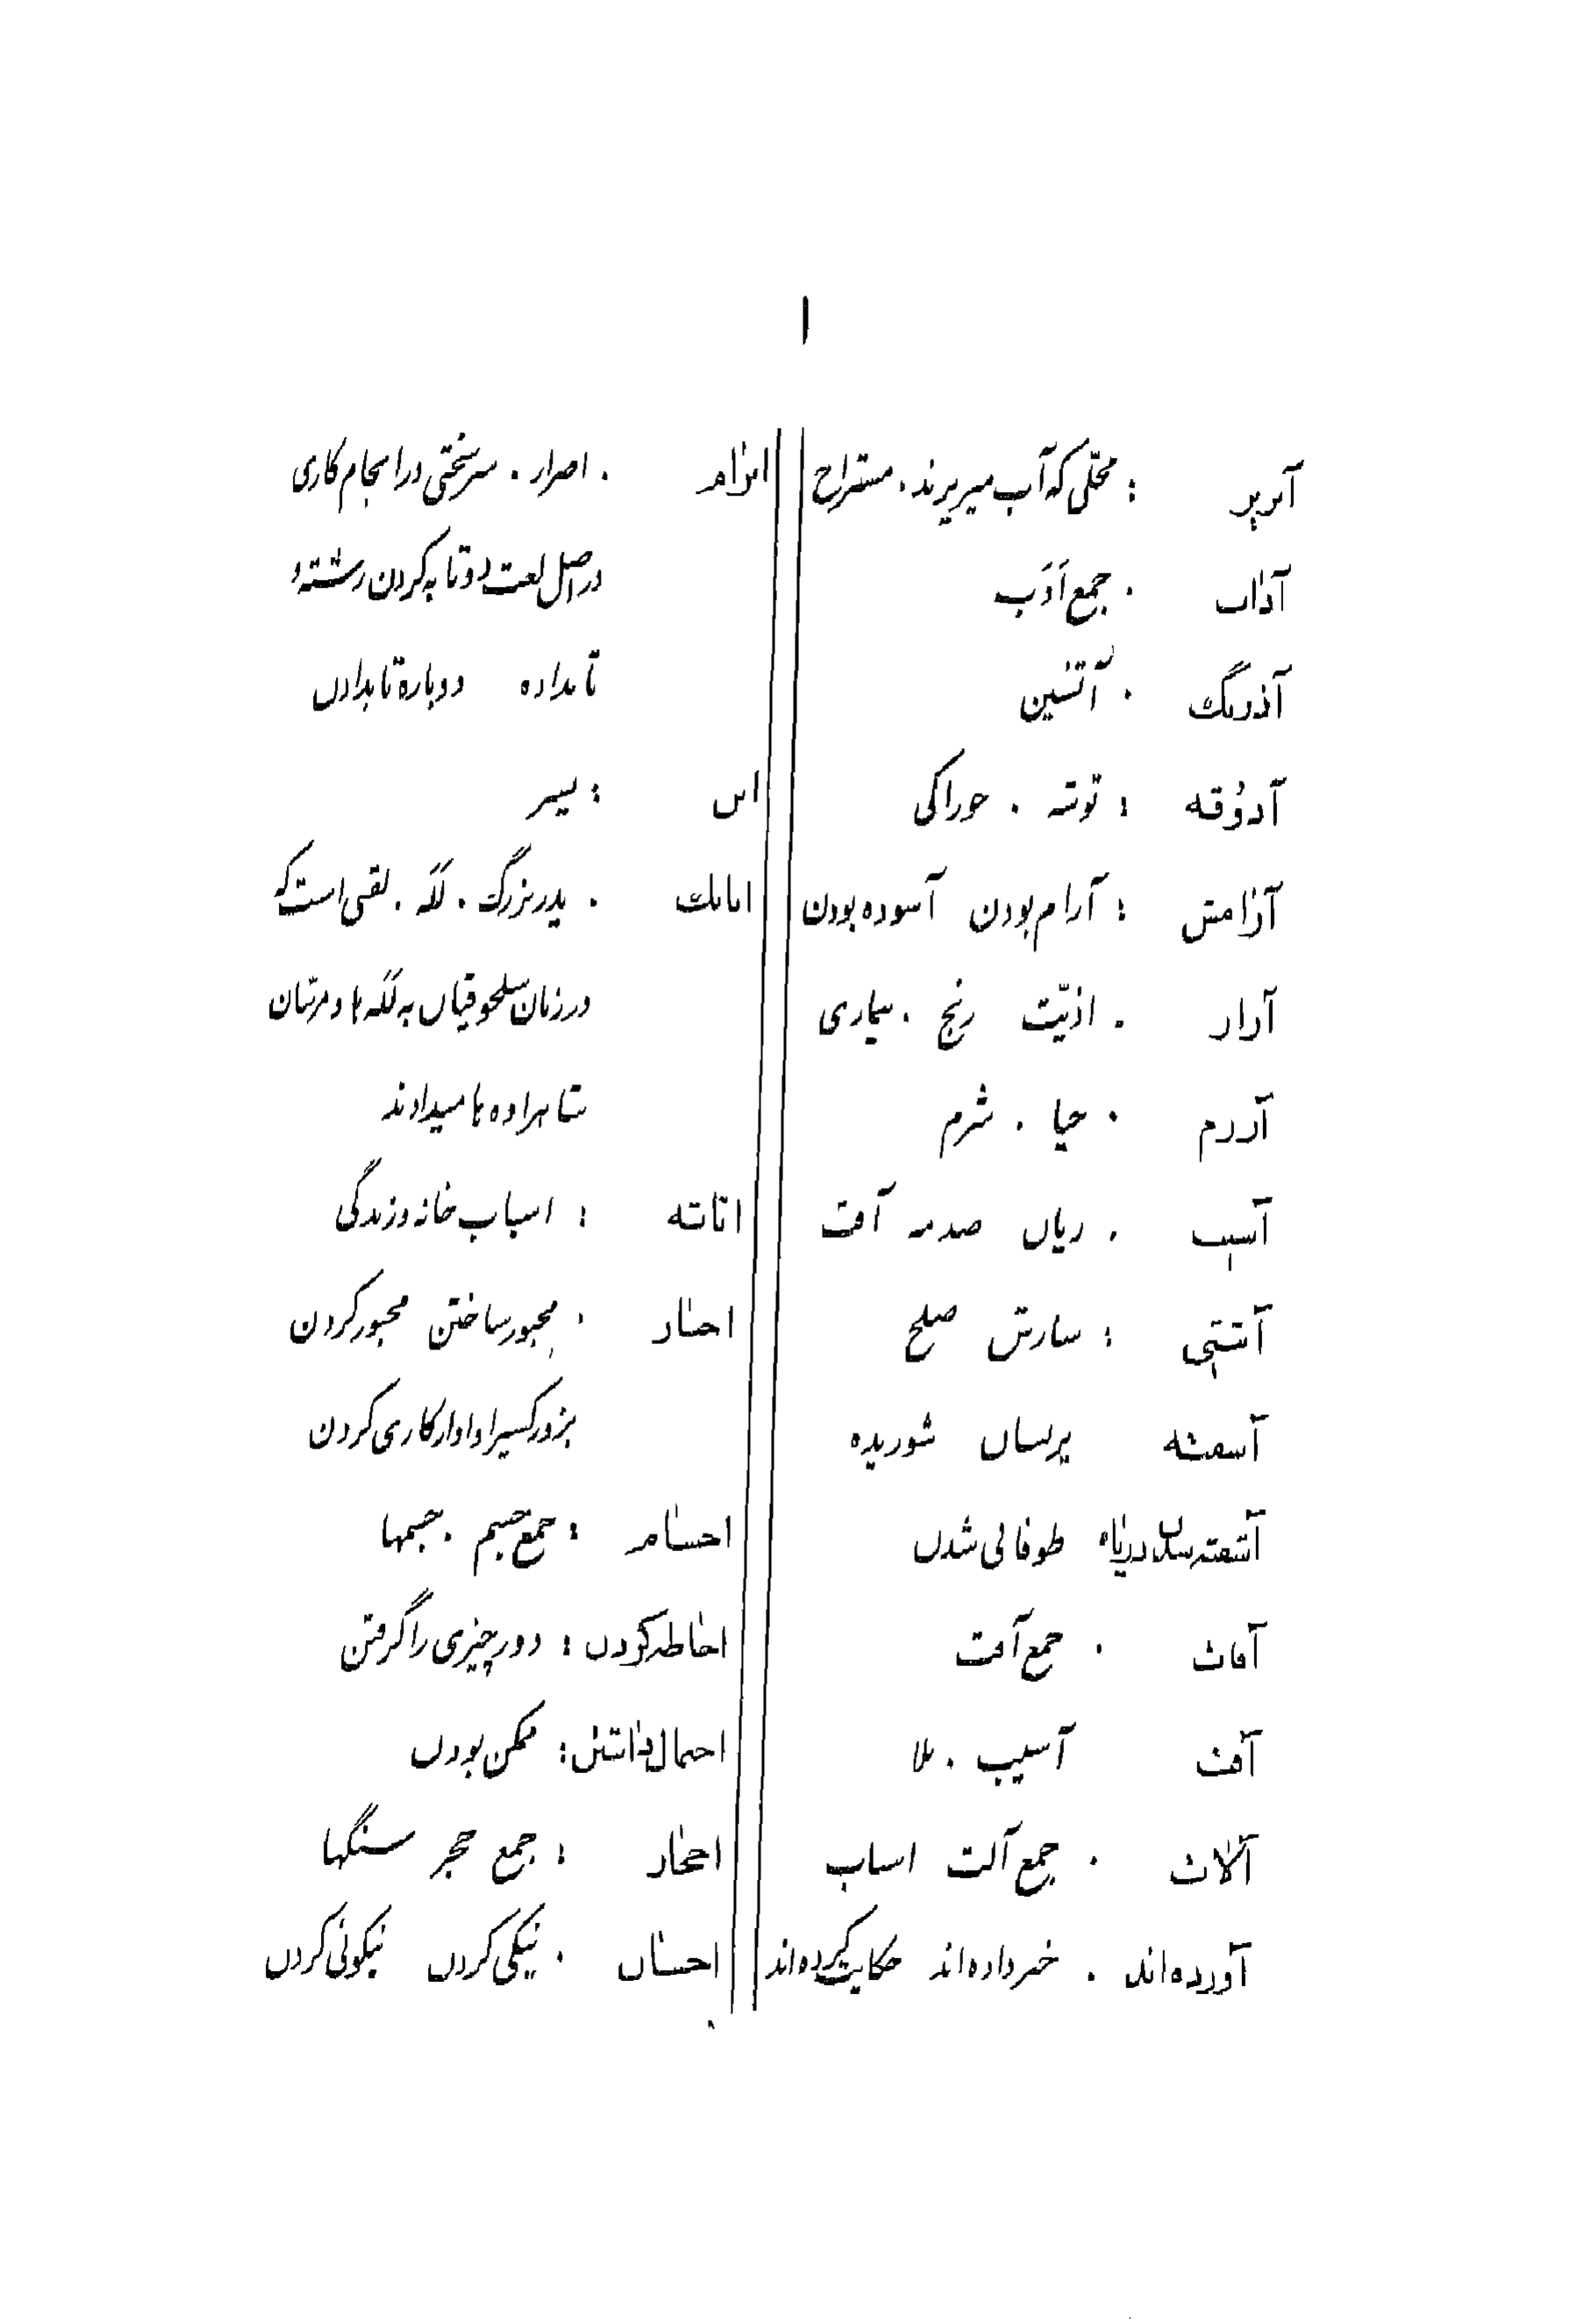 ا
آبریز : محلّی که آب میریزند . مستراح
آداب . جمع اَدَب
آذرنگ . آتشین
آذوُقه : توشه . خوراکی
آرامش : آرام بودن آسوده بودن
آزار . اذیّت رنج . بیماری
آزرم . حیا . شرم
آسیب . زیان صدمه آفت
آشتی : سازش صلح
آشفته پریشان شوریده
آشفته شدن دریا طوفانی شدن
آفات . جمع آفت
آفت آسیب . بلا
آلات . جمع آلت اسباب
آورده‌اند . خبر داده‌اند حکایت کرده‌اند
ابرام . اصرار . سرسختی در انجام کاری
در اصل لغت دو تا به کردن رشتهٔ
تابداده دوباره تابدادن
ابن : پسر
اتابک . پدربزرگ . لَلَه . لقبی است که
در زمان سلجوقیان به لَلَه‌ها و مربّیان
شاهزاده‌ها میدادند
اثاثه : اسباب خانه و زندگی
اجبار . مجبور ساختن مجبور کردن
بزور کسیرا وادار کاری کردن
اجسام : جمع جسم . جسمها
احاطه کردن : دور چیزی را گرفتن
احتمال داشتن : ممکن بودن
احجار : جمع حجر سنگها
احسان . نیکی کردن نیکوئی کردن